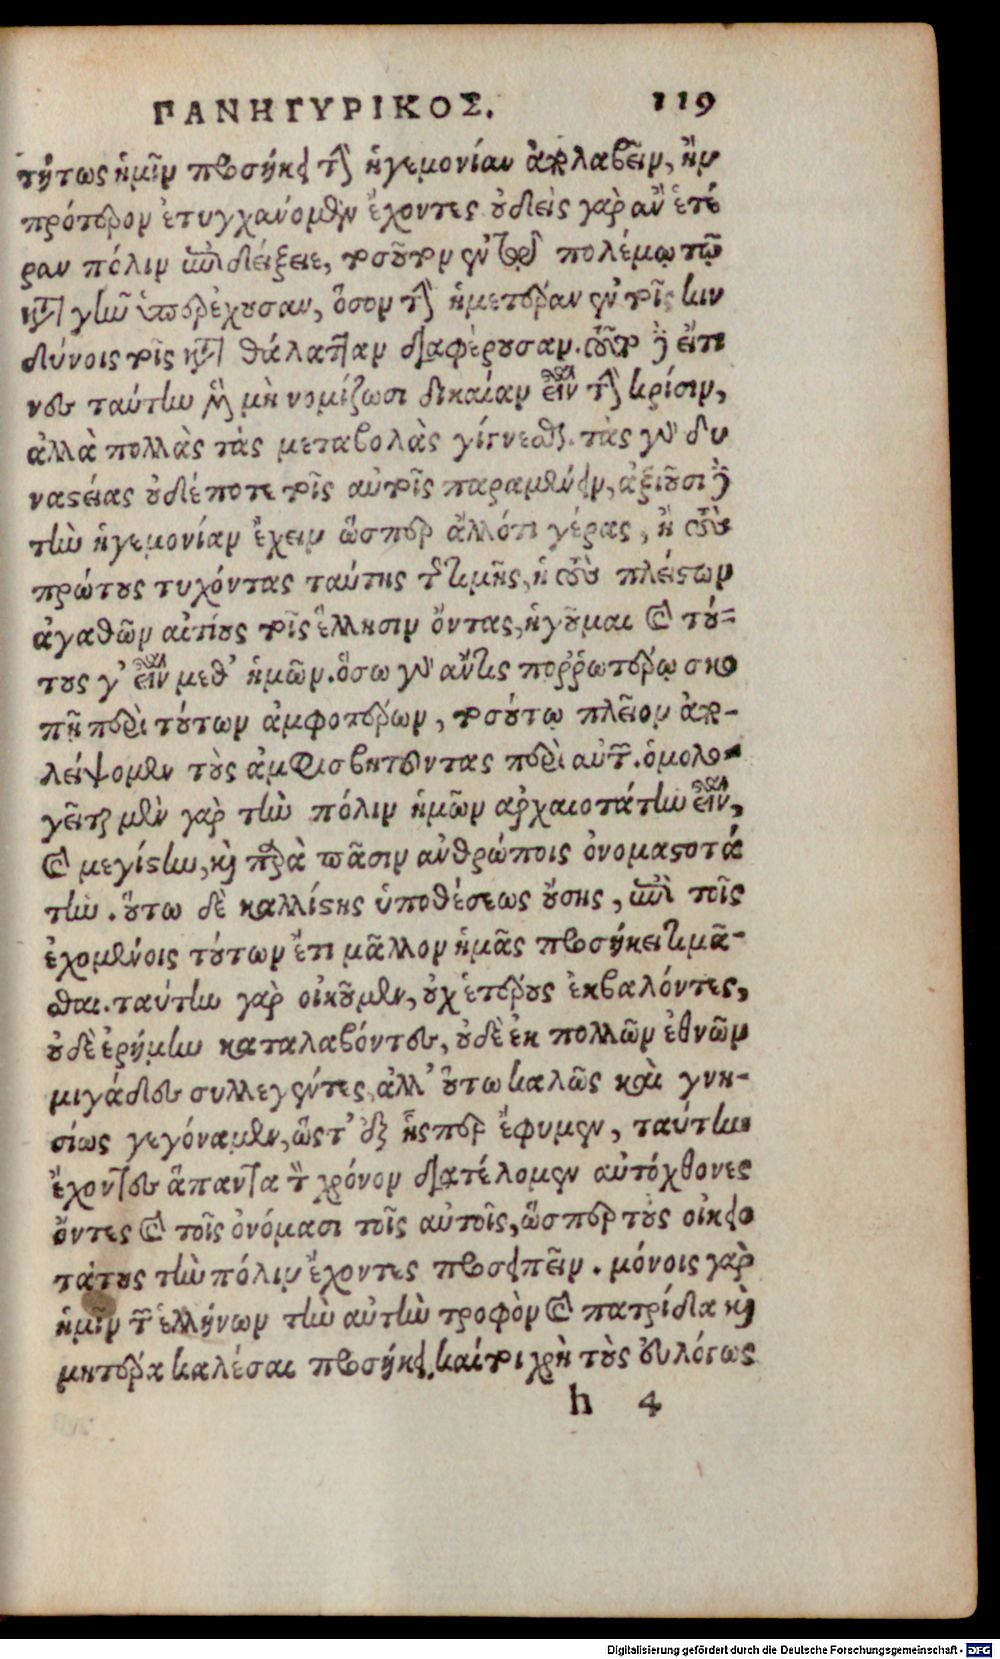 ΠΑΝΗΓΥΡΙΚΟΣ. 119
τούτως ἡμῖν προσήκει τὴν ἡγεμονίαν ἀπολαβεῖν, ἥν
πρότερον ἐτυγχάνομεν ἔχοντες οὐδεὶς γὰρ ἂν ἑτέ
ραν πόλιν ἐπιδείξειε, τοσοῦτον ἐν τῷ πολέμῳ τῷ
κατὰ γῆν ὑπερέχουσαν, ὅσον τὴν ἡμετέραν ἐν τοῖς κιν
δύνοις τοῖς κατὰ θάλατταν διαφέρουσαν. τοῦτο δὲ εἴ τι
νες ταύτην μὲν μὴ νομίζωσι δικαίαν εἶναι τὴν κρίσιν,
ἀλλὰ πολλὰς τὰς μεταβολὰς γίγνεσθαι. τὰς γὰρ δυ
ναστείας οὐδέποτε τοῖς αὐτοῖς παραμένειν, ἀξιοῦσι δὲ
τὴν ἡγεμονίαν ἔχειν ὥσπερ ἄλλό τι γέρας, ἢ τοὺς
πρώτους τυχόντας ταύτης τῆς τιμῆς, ἢ τοὺς πλείστων
ἀγαθῶν αἰτίους τοῖς ἕλλησιν ὄντας, ἡγοῦμαι καὶ τού-
τους γ' εἶναι μεθ' ἡμῶν. ὅσῳ γὰρ ἄν τις πορρωτέρω σκο
πῇ περὶ τούτων ἀμφοτέρων, τοσούτῳ πλεῖον ἀπο-
λείψομεν τοὺς ἀμφισβητοῦντας περὶ αὐτῶν. ὁμολο-
γεῖται μὲν γὰρ τὴν πόλιν ἡμῶν ἀρχαιοτάτην εἶναι,
καὶ μεγίστην, καὶ παρὰ πᾶσιν ἀνθρώποις ὀνομαστοτά
την. οὕτω δὲ καλλίστης ὑποθέσεως οὔσης, ἐπὶ τοῖς
ἐχομένοις τούτων ἔτι μᾶλλον ἡμᾶς προσήκει τιμᾶ-
σθαι. ταύτην γὰρ οἰκοῦμεν, οὐχ ἑτέρους ἐκβαλόντες,
οὐδὲ ἐρήμην καταλαβόντες, οὐδὲ ἐκ πολλῶν ἐθνῶν
μιγάδες συλλεγέντες, ἀλλ' οὕτω καλῶς καὶ γνη-
σίως γεγόναμεν, ὥστ' ἐξ ἧσπερ ἔφυμεν, ταύτην
ἔχοντες ἅπαντα τὸν χρόνον διατέλομεν αὐτόχθονες
ὄντες καὶ τοῖς ὀνόμασι τοῖς αὐτοῖς, ὥσπερ τοὺς οἰκειο
τάτους τὴν πόλιν ἔχοντες προσειπεῖν. μόνοις γὰρ
ἡμῖν τῶν ἑλλήνων τὴν αὐτὴν τροφὸν καὶ πατρίδα καὶ
μητέρα καλέσαι προσήκει. καίτοι χρὴ τοὺς εὐλόγως
h 4
Digitalisierung gefördert durch die Deutsche Forschungsgemeinschaft - DFG